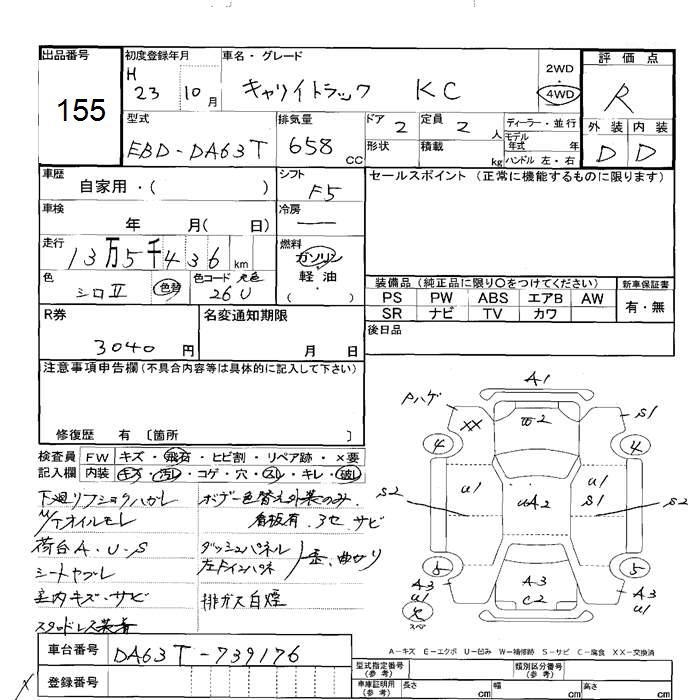 出品番号
155
初度登録年月
H 23 10月
車名・グレード
キャリイトラック KC
2WD・4WD
評価点
R
外装 内装
D D
型式
EBD-DA63T
排気量
658 CC
ドア 2
定員 2 人
形状
積載 kg
ディーラー・並行
モデル年式 年
ハンドル 左・右
車歴
自家用・( )
シフト
F5
セールスポイント (正常に機能するものに限ります)
車検
年 月( 日)
冷房
—
走行
13万5千436 km
燃料
ガソリン・軽油・( )
色
シロⅡ
色替
色コード 元色
26U
装備品 (純正品に限り〇をつけてください)
新車保証書
PS PW ABS エアB AW
有・無
SR ナビ TV カワ
R券
3040 円
名変通知期限
月 日
後日品
注意事項申告欄(不具合内容等は具体的に記入して下さい)
修復歴 有 〔箇所 〕
検査員 FW キズ・飛石・ヒビ割・リペア跡・×要
記入欄 内装 キズ・汚レ・コゲ・穴・スレ・キレ・破レ
下廻リフショクハガレ
M/Tオイルモレ
荷台A.U.S
シートヤブレ
室内キズ・サビ
スタッドレス装着
ボデー色替え外装のみ.
看板有.3セ サビ
ダッシュパネル
左ドインパネ
歪、曲がり
排ガス白煙
A1
Pハゲ
XX
W2
S1
4
4
U1
U1
S1
S2
S2
UA2
5
5
A3
U1
A3
C2
A3
U1
スペ
A−キズ E−エクボ U−凹み W−補修跡 S−サビ C−腐食 XX−交換済
車台番号
DA63T-739176
登録番号
型式指定番号(参考)
類別区分番号(参考)
車庫証明用(参考) 長さ cm 幅 cm 高さ cm